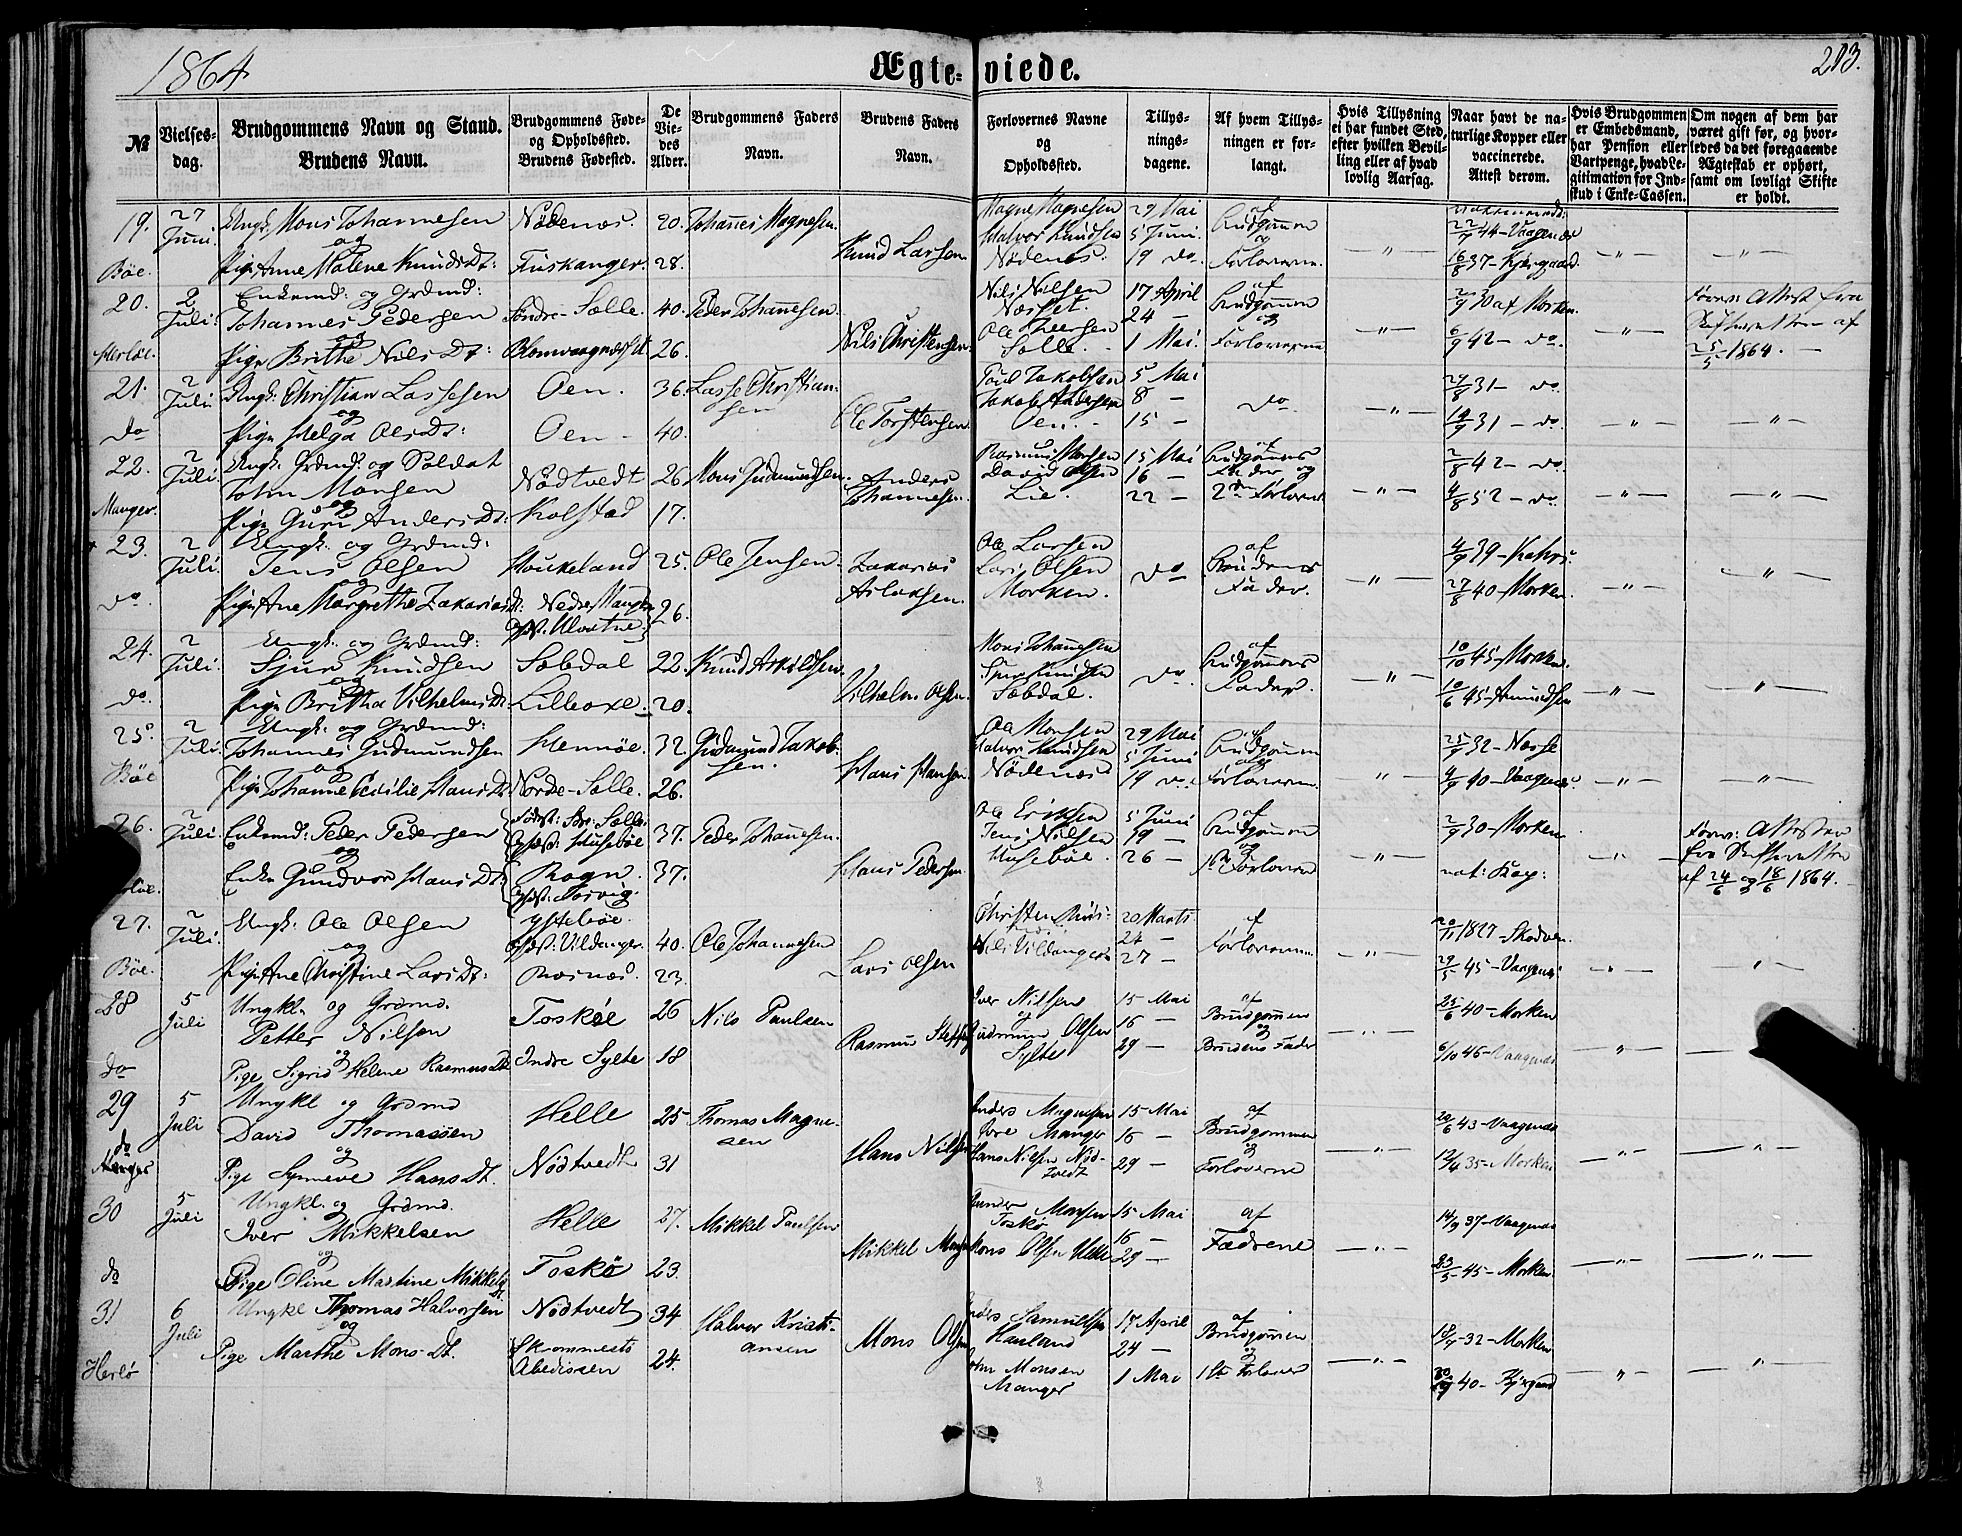 1864
Ægte-viede.
213.
№
Vielses-dag.
Brudgommens Navn og Stand.
Brudens Navn.
Brudgommens Føde- og Opholdssted.
Brudens Fødested.
De Viedes Alder.
Brudgommens Faders Navn.
Brudens Faders Navn.
Forlovernes Navne og Opholdssted.
Tillysningsdagene.
Af hvem Tillysningen er forlangt.
Hvis Tillysning ei har fundet Sted, efter hvilken Bevilling eller af hvad lovlig Aarsag.
Naar havt de naturlige Kopper eller vaccinerede. Attest derom.
Hvis Brudgommen er Embedsmand, har Pension eller Vartpenge, hvad Legitimation for Indskud i Enke-Cassen.
Om nogen af dem har været gift før, og hvorledes da det foregaaende Ægteskab er ophørt, samt om lovligt Skifte er holdt.
19. 27 Juni. Ungk: Mons Johannesen Nødenæs. 20. Johannes Magnesen. Magne Magnesen 29 Mai af Brudgommen 22/7 44 - Vaagenæs
og Knud Larsen. Halvor Knudsen 5 Juni. og
Bøe. Pige Anne Malene Knudsdt: Fuskanger. 28. Nødenæs. 19 do. Forloverne. 16/8 37 - Kjergaard.
20. 2 Juli. Enkemd: og Grdmd: Nils Nilsen 17 April af
Johannes Pedersen Søndre-Sælle. 40. Peder Johannesen. Næsset. 24 - Brudgommen 30 af Morken. Forev: Attest fra
og Nils Christensen. Ole Iversen og Skifteretten af
Herløe. Pige Brithe Nilsdt: Blomvaagnæset. 26. Sælle. 1 Mai. Forloverne 6/9 42 - do. 25/5 1864.
21. 2 Juli Ungk: Christian Lassesen Oen. 36. Lasse Christiansen Poul Jakobsen 5 Mai 31 - do
og Ole Torstensen. Jakob Andersen 8 - do.
do Pige Helga Olsdt: Oen - 40. Oen. - 15 - 31 - do.
22. 2 Juli. Ungk: Grdmd: og Soldat Nødtvedt 26 Mons Gudmundsen. Rasmus Monsen 15 Mai Brudgommens 2/8 42 - do.
John Monsen Anders Johannesen. David Olsen 16 - Fader og
Manger. Pige Guri Andersdt: Kolstad 17. Lie. 22 - 2den Forlover 4/8 52 - do.
23. 2 Juli. Ungk: og Grdmd: Ole Larsen af
Jens Olsen Houkeland 25. Ole Jensen. Zakarias Lars Olsen do Brudens 39 - Kahrs.
do. Pige Ane Margrethe Zakariasdt: Nedre Mangen 26. Aslaksen. Morken. Fader. 27/8 40 - Morken.
24. 2 Juli. Ungk: og Grdmd: Mons Johannesen af
Sjurs Knudsen Sæbdal 22. Knud Askildsen. Sjur Knudsen do Brudgommens 10/10 45 - Morken.
do. Pige Britha Vilhelmsdt: Lilleoxe. 20. Vilhelm Olsen. Sæbdal. Fader. 10/6 45 - Amundsen
25. 2 Juli Ungk: og Grdmd: Ole Monsen 29 Mai af
Johannes Gudmundsen Hennøe. 32. Gudmund Jakobsen. Halvor Knudsen 5 Juni Brudgommen 25/9 32 - Næsse
Bøe Pige Johanne Cecilie Hansdt: Nordre-Sælle. 26. Hans Hansen. Nødenæs 19 do. Forloverne. 40 - Vaagenæs
26. 2 Juli. Enkemd: Peder Pedersen Fødest: Sdr: Sælle Opst: Husebøe 37. Peder Johannesen. Ole Eriksen 5 Juni af Brudgommen 2/9 30 - Morken Forev: Attester
og Jens Nilsen 19 - og fra Skifteretten
Enke Gundvor Hansdt: Rogn. Opst: Torvig. 37. Hans Pedersen Husebøe. 26 - 1ste Forlover nat: Kop: af 24/6 og 18/6 1864.
27. 2 Juli. Ungk: Ole Olsen Ystebøe. Opst: Vildanger. 40. Ole Johannesen 20 Marts af 20/11 1827 - Skodven.
og 24 - Forloverne
Bøe. Pige Ane Christine Larsdt: Rosnæs. 23. Lars Olsen Nils Vildanger 27 - 29/5 45 - Vaagenæs
28 5 Juli Ungkl. og Grdmd. Iver Nilsen 15 Mai af
Petter Nilsen Toskøe 26 Nils Paulsen og 16 - Brudgommen 25/6 40 - Morken
og Rasmus Steffens Gudmund Olsen og
do Pige Sigrid Helene Rasmusdt Indre Sylte 18 Sylte 29 - Brudens Fader 6/10 46 - Vaagenæs
29 5 Juli Ungkl og Grdmd Anders Magnesen 15 Mai af
David Thomassen Helle 25 Thomas Magnesen Manger 16 - Brudgommen 20/6 43 - Vaagenæs
do Manger og Hans Nilsen Hans Nilsen Nødtvedt 29 - og
Pige Synneve Hansdt. Nødtvedt 31 Forloverne 12/4 35 - Morken
30 5 Juli Ungkl. og Grdmd. Gunder Monsen 15 Mai af 14/9 37 - Vaagenæs
Iver Mikkelsen Helle 27. Mikkel Paulsen Toskø 16 - Fædrene
do Pige Oline Martine Mikkelsdt Toskø 23. Mikkel Mons Olsen Helle 29 - 23/5 45 - Morken
31 6 Juli Ungkl Thomas Halvorsen Nødtvedt 34 Halvor Kristiansen Anders Samuelsen 17 April af 32 - Morken
og Mons Olsen Haaland 24 - Brudgommen og
Herlø Pige Marthe Monsdt. Skrommests Abedissen 24. John Monsen Manger 1 Mai 1ste Forlover 40 - Kjergaard